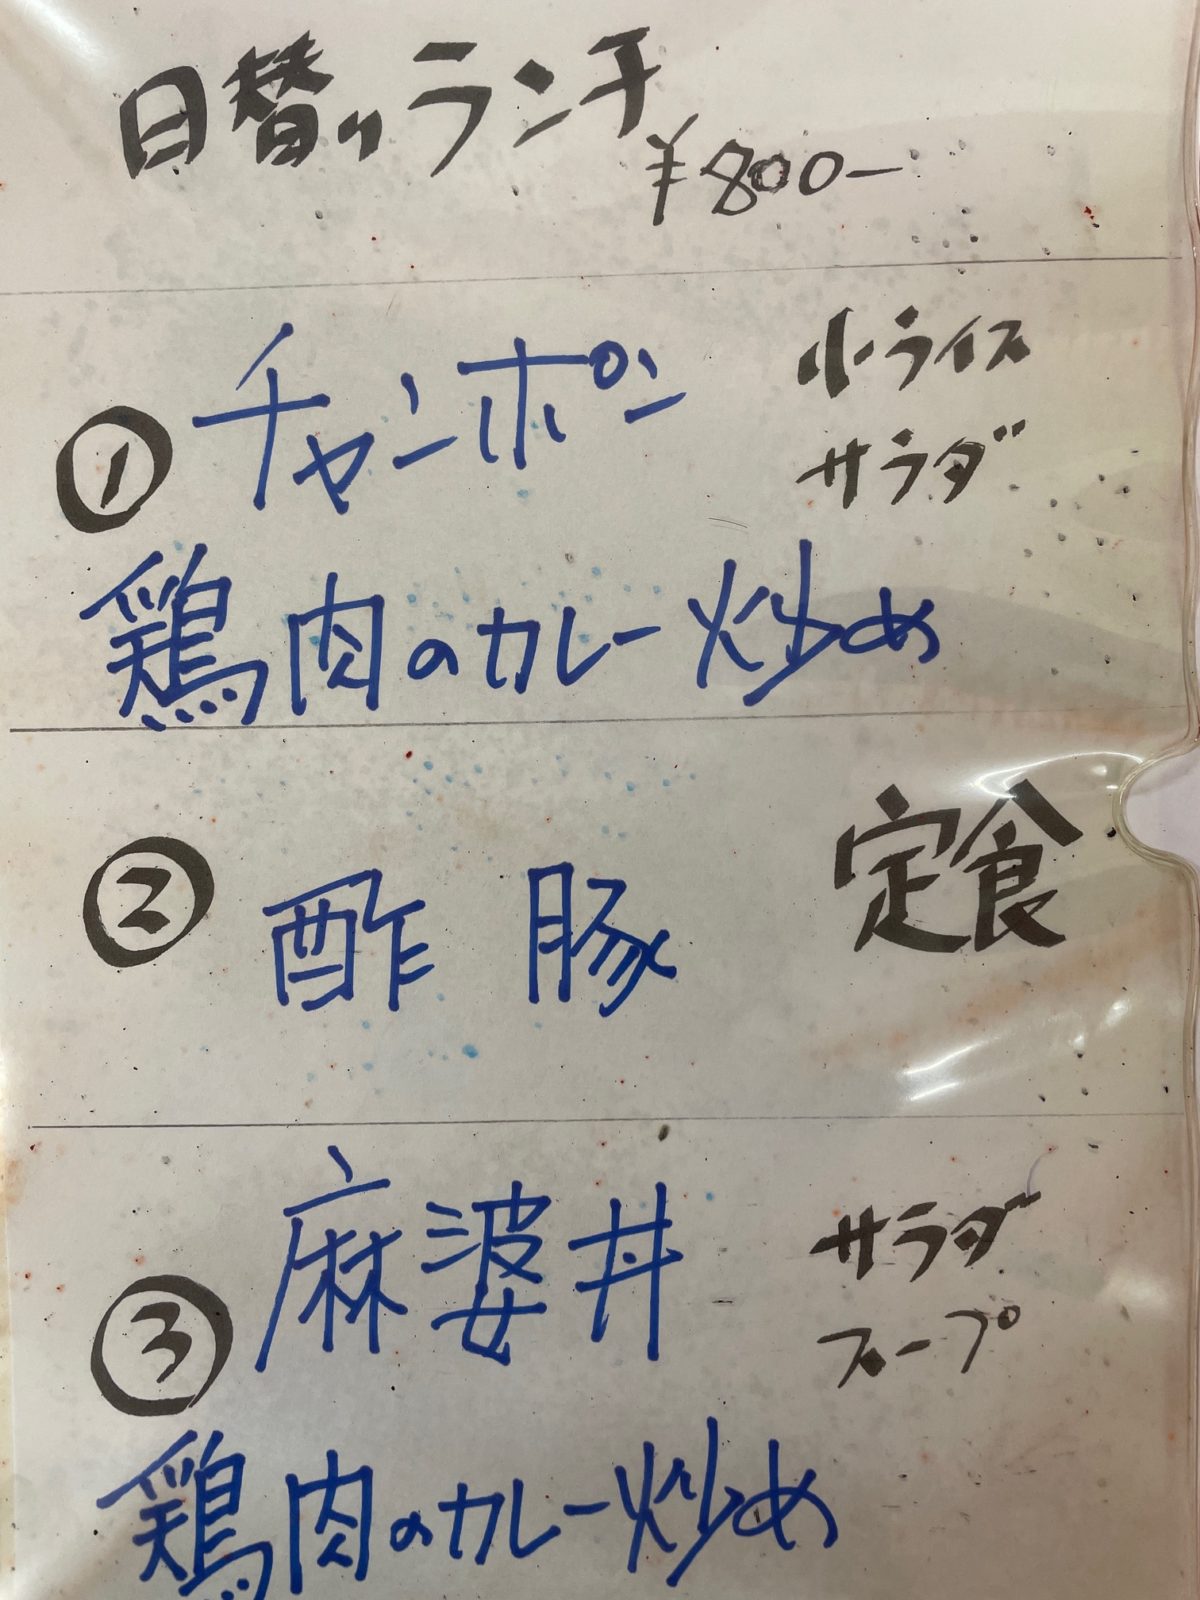 日替りランチ
¥800-
① チャンポン 小ライス
サラダ
鶏肉のカレー炒め
② 酢豚 定食
③ 麻婆丼 サラダ
スープ
鶏肉のカレー炒め